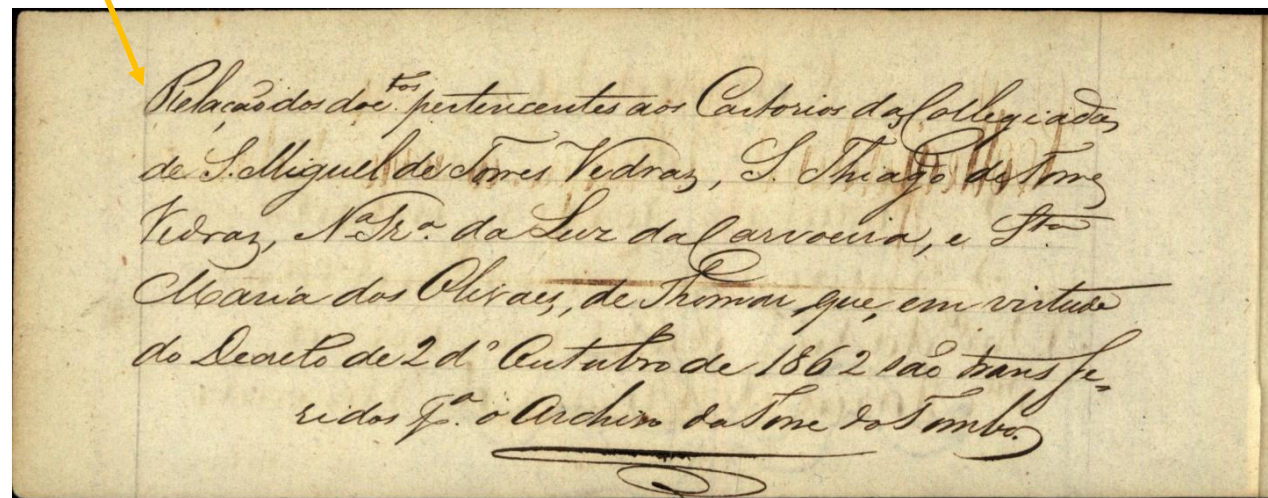 Relação dos doc.tos pertencentes aos Cartorios das Collegiadas
de S. Miguel de Torres Vedras, S. Thiago de Torres
Vedras, N.a Sr.a da Luz da Carvoeira, e Sta
Maria dos Olivaes, de Thomar, que, em virtude
do Decreto de 2 d'Outubro de 1862 são transfe-
ridos p.a o Archivo da Torre do Tombo.